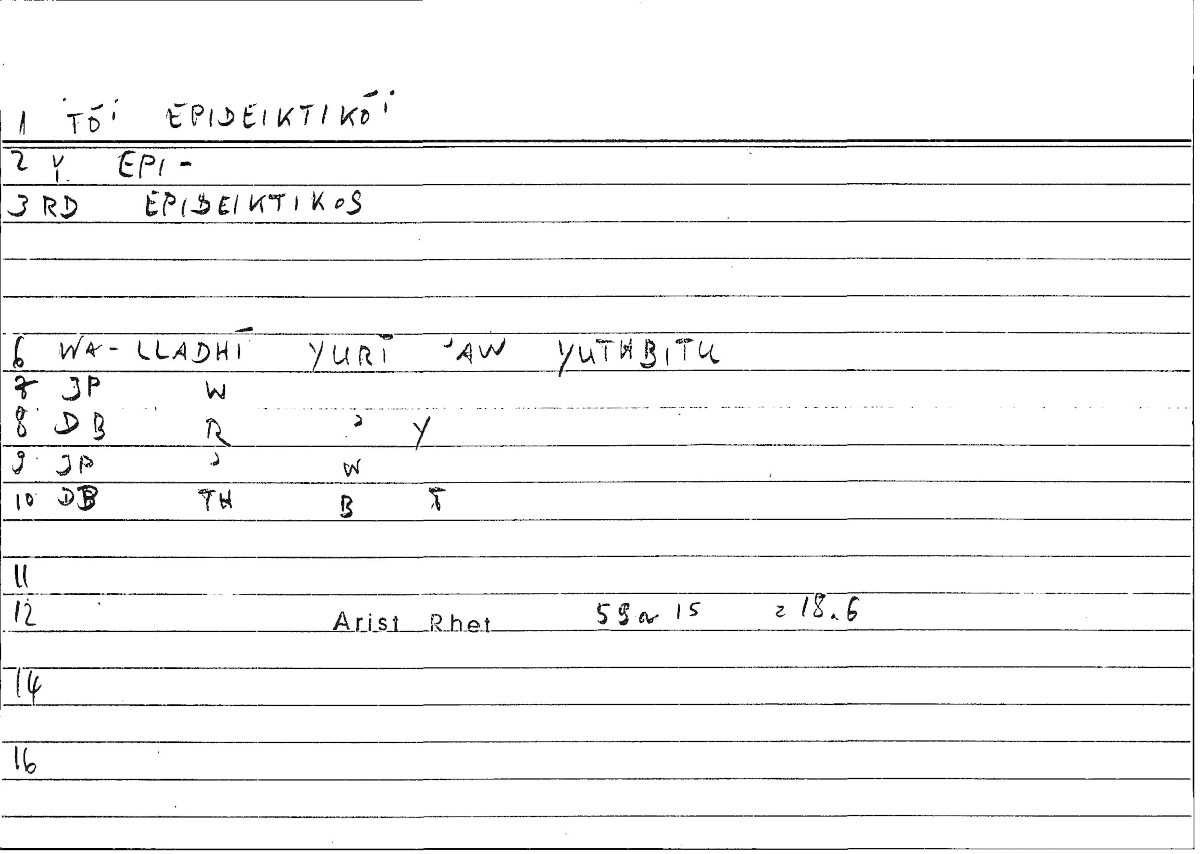 1 TŌI EPIDEIKTIKŌI
2 Y EPI-
3 RD EPIDEIKTIKOS
6 WA-LLADHĪ YURĪ ʾAW YUTHBITU
7 JP W
8 DB R ʾ Y
9 JP ʾ W
10 DB TH B T
11
12 Arist Rhet 58a 15 = 18.6
14
16